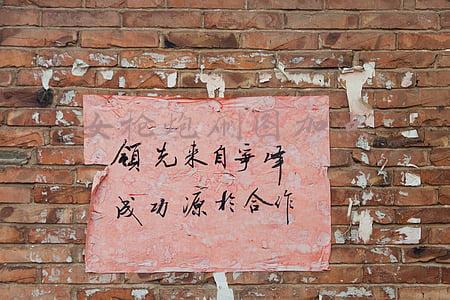 领先来自争峰
成功源於合作